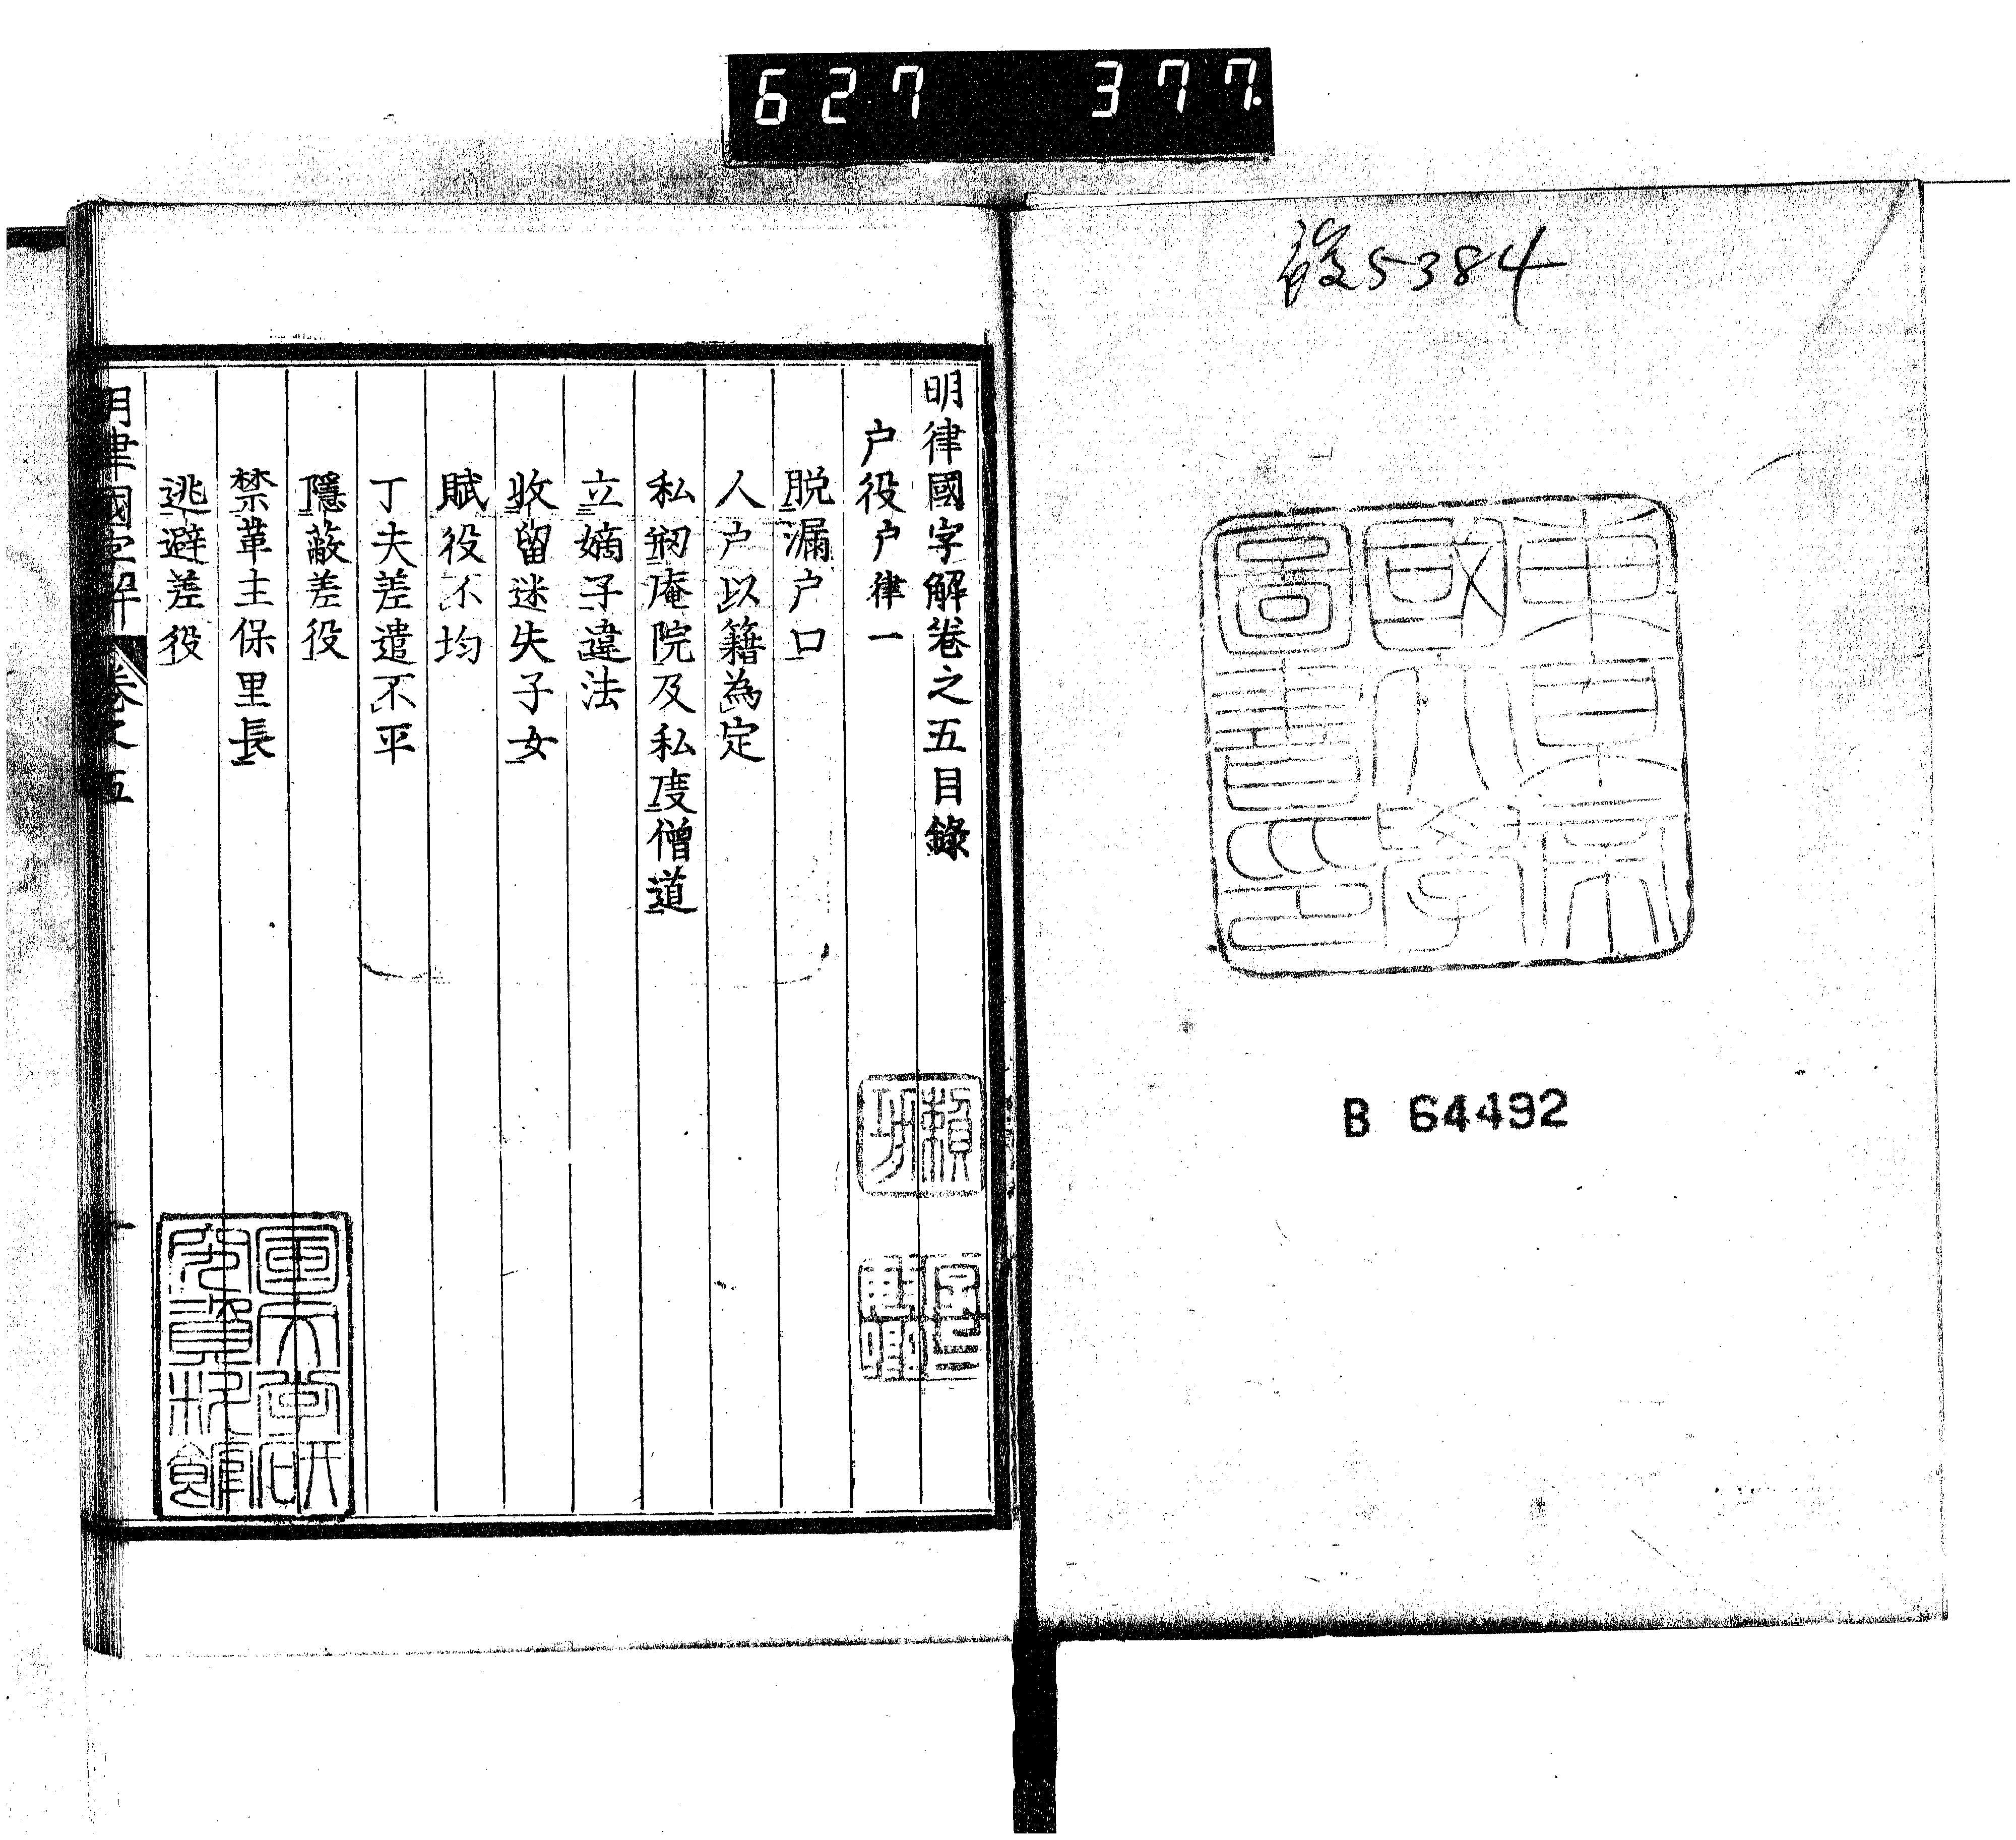 627 377.
5384
東京帝
國大學
圖書印
B 64492
明律國字解卷之五目錄
户役户律一
脱漏户口
人户以籍為定
私剏庵院及私度僧道
立嫡子違法
收留迷失子女
賦役不均
丁夫差遣不平
隱蔽差役
禁革主保里長
逃避差役
明律國字解 卷之五
賴